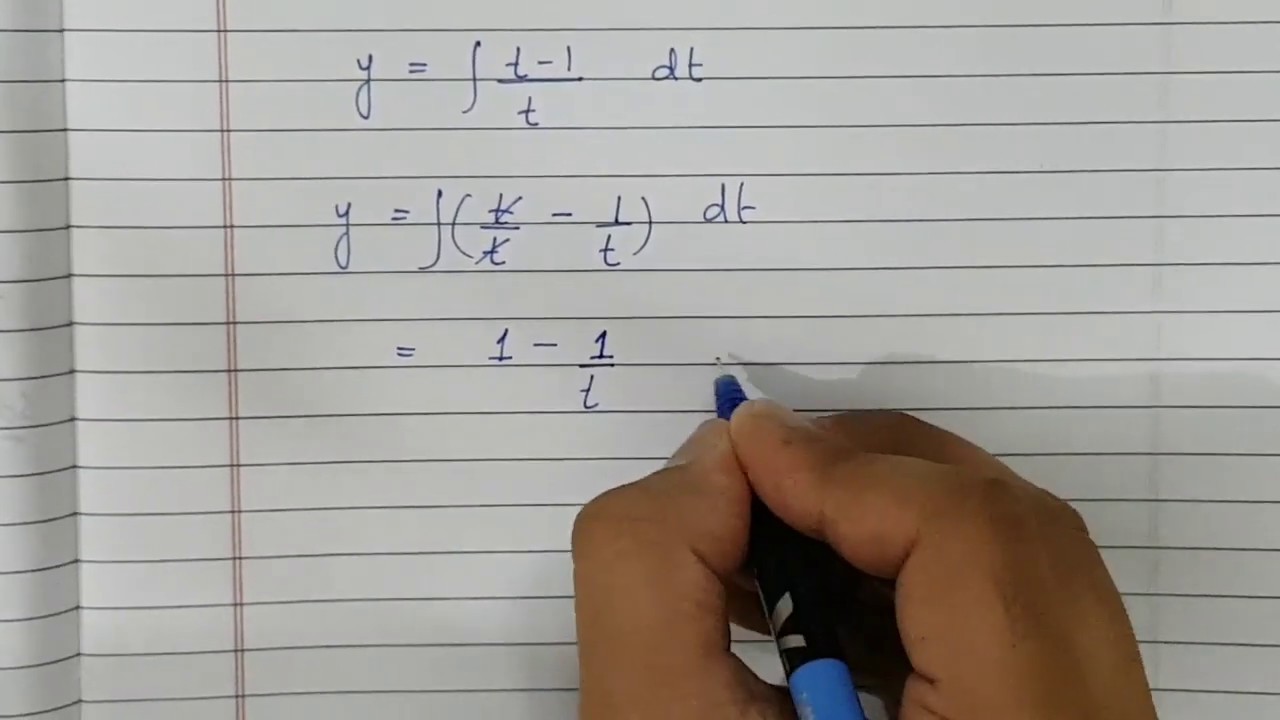 y = ∫ (t-1)/t dt
y = ∫ (t/t - 1/t) dt
= 1 - 1/t